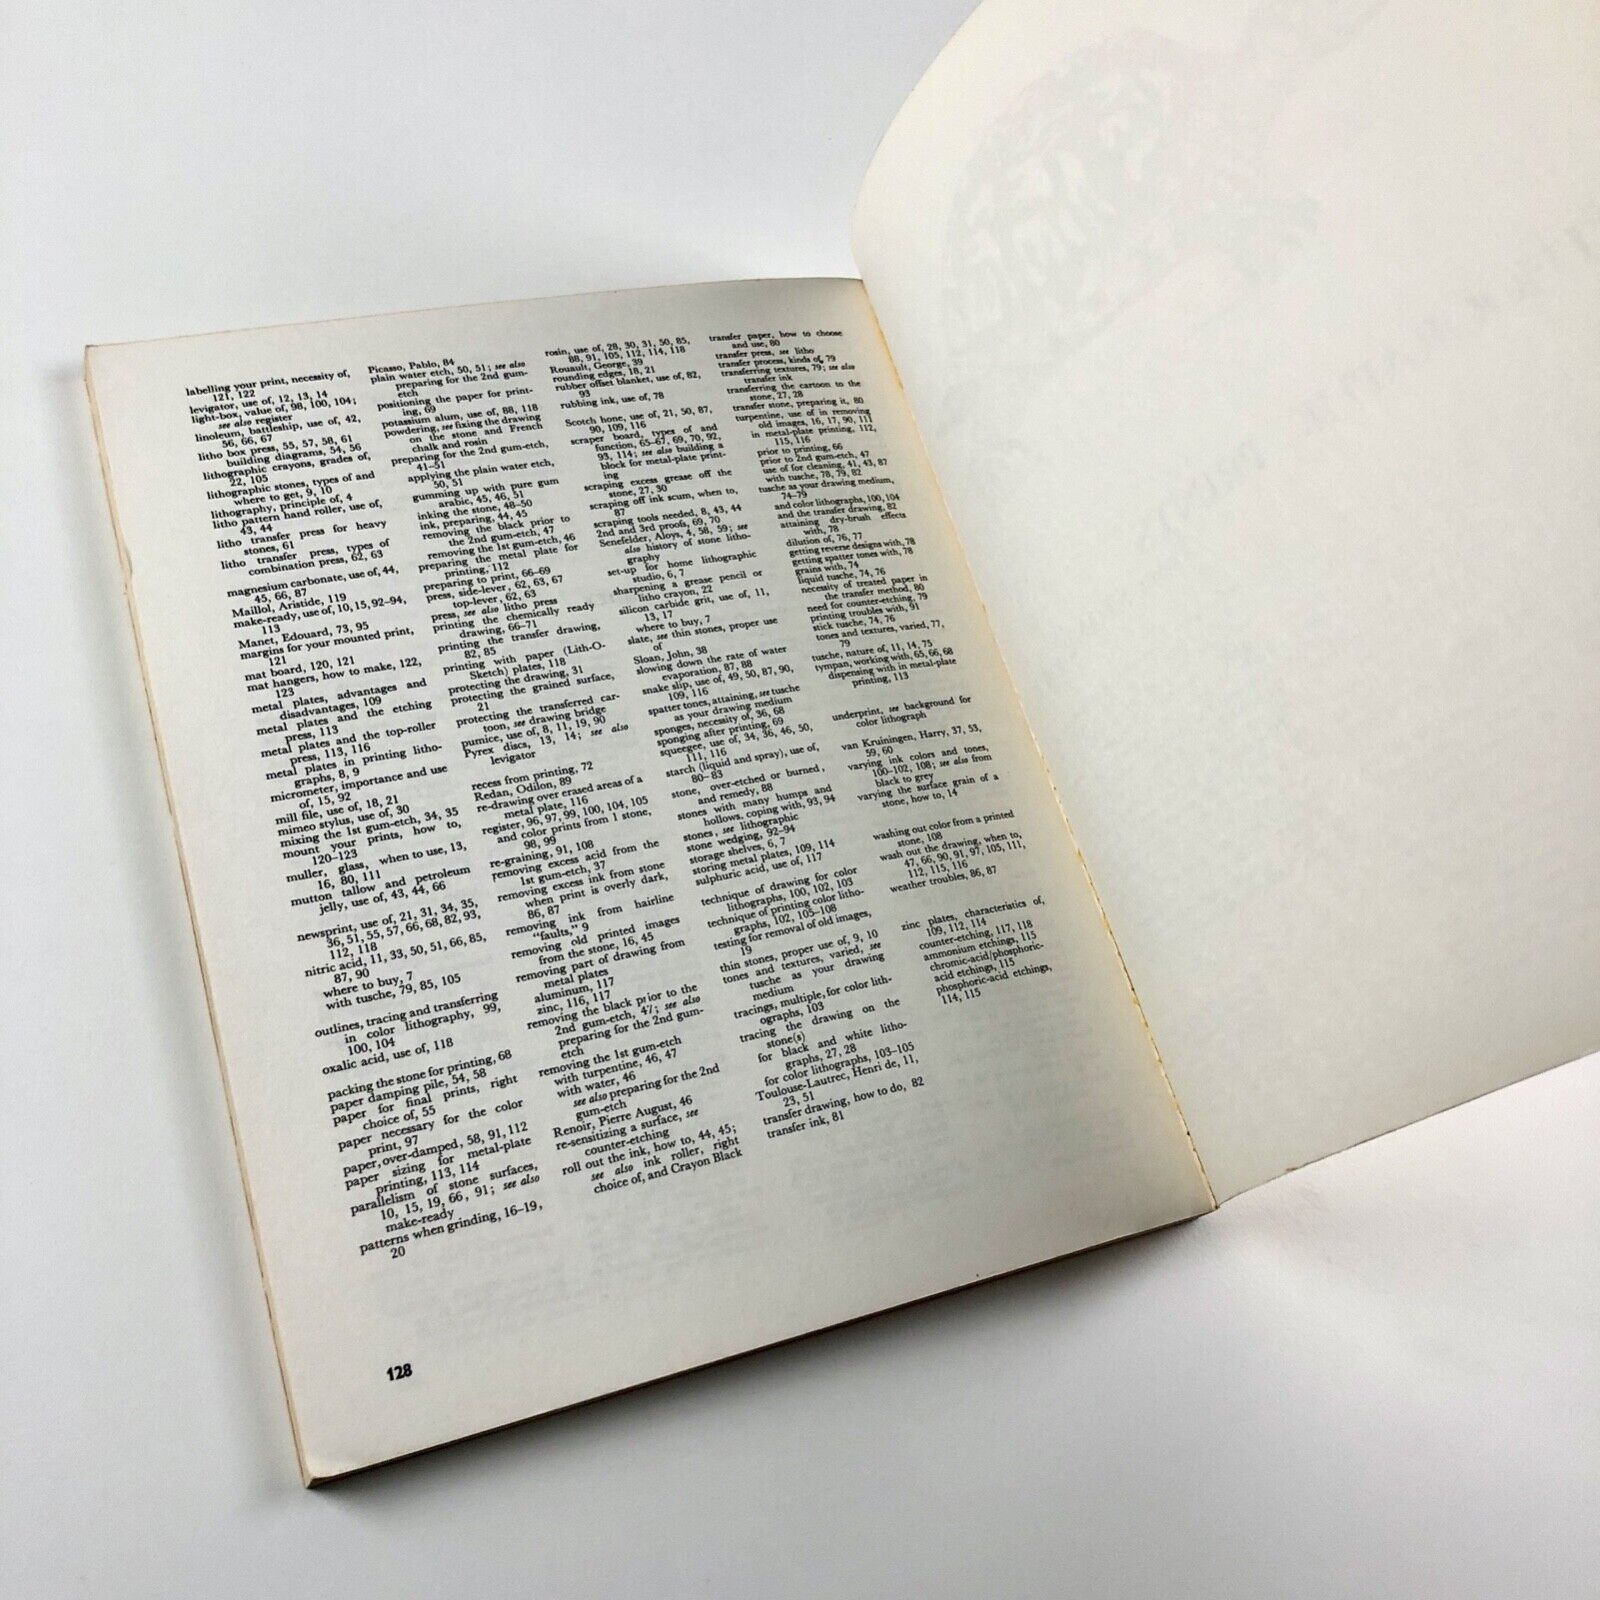 labelling your print, necessity of,
121, 122
levigator, use of, 12, 13, 14
light-box, value of, 98, 100, 104;
see also register
linoleum, battleship, use of, 42,
56, 66, 67
litho box press, 55, 57, 58, 61
building diagrams, 54, 56
lithographic crayons, grades of,
22, 105
lithographic stones, types of and
where to get, 9, 10
lithography, principle of, 4
litho pattern hand roller, use of,
43, 44
litho transfer press for heavy
stones, 61
litho transfer press, types of
combination press, 62, 63
magnesium carbonate, use of, 44,
45, 66, 87
Maillol, Aristide, 119
make-ready, use of, 10, 15, 92–94,
113
Manet, Edouard, 73, 95
margins for your mounted print,
121
mat board, 120, 121
mat hangers, how to make, 122,
123
metal plates, advantages and
disadvantages, 109
metal plates and the etching
press, 113
metal plates and the top-roller
press, 113, 116
metal plates in printing litho-
graphs, 8, 9
micrometer, importance and use
of, 15, 92
mill file, use of, 18, 21
mimeo stylus, use of, 30
mixing the 1st gum-etch, 34, 35
mount your prints, how to,
120–123
muller, glass, when to use, 13,
16, 80, 111
mutton tallow and petroleum
jelly, use of, 43, 44, 66
newsprint, use of, 21, 31, 34, 35,
36, 51, 55, 57, 66, 68, 82, 93,
112, 118
nitric acid, 11, 33, 50, 51, 66, 85,
87, 90
where to buy, 7
with tusche, 79, 85, 105
outlines, tracing and transferring
in color lithography, 99,
100, 104
oxalic acid, use of, 118
packing the stone for printing, 68
paper damping pile, 54, 58
paper for final prints, right
choice of, 55
paper necessary for the color
print, 97
paper, over-damped, 58, 91, 112
paper sizing for metal-plate
printing, 113, 114
parallelism of stone surfaces,
10, 15, 19, 66, 91; see also
make-ready
patterns when grinding, 16–19,
20
Picasso, Pablo, 84
plain water etch, 50, 51; see also
preparing for the 2nd gum-
etch
positioning the paper for print-
ing, 69
potassium alum, use of, 88, 118
powdering, see fixing the drawing
on the stone and French
chalk and rosin
preparing for the 2nd gum-etch,
41–51
applying the plain water etch,
50, 51
gumming up with pure gum
arabic, 45, 46, 51
inking the stone, 48–50
ink, preparing, 44, 45
removing the black prior to
the 2nd gum-etch, 47
removing the 1st gum-etch, 46
preparing the metal plate for
printing, 112
preparing to print, 66–69
press, side-lever, 62, 63, 67
top-lever, 62, 63
press, see also litho press
printing the chemically ready
drawing, 66–71
printing the transfer drawing,
82, 85
printing with paper (Lith-O-
Sketch) plates, 118
protecting the drawing, 31
protecting the grained surface,
21
protecting the transferred car-
toon, see drawing bridge
pumice, use of, 8, 11, 19, 90
Pyrex discs, 13, 14; see also
levigator
recess from printing, 72
Redan, Odilon, 89
re-drawing over erased areas of a
metal plate, 116
register, 96, 97, 99, 100, 104, 105
and color prints from 1 stone,
98, 99
re-graining, 91, 108
removing excess acid from the
1st gum-etch, 37
removing excess ink from stone
when print is overly dark,
86, 87
removing ink from hairline
"faults," 9
removing old printed images
from the stone, 16, 45
removing part of drawing from
metal plates
aluminum, 117
zinc, 116, 117
removing the black prior to the
2nd gum-etch, 47; see also
preparing for the 2nd gum-
etch
removing the 1st gum-etch
with turpentine, 46, 47
with water, 46
see also preparing for the 2nd
gum-etch
Renoir, Pierre August, 46
re-sensitizing a surface, see
counter-etching
roll out the ink, how to, 44, 45;
see also ink roller, right
choice of, and Crayon Black
rosin, use of, 28, 30, 31, 50, 85,
88, 91, 105, 112, 114, 118
Rouault, George, 39
rounding edges, 18, 21
rubber offset blanket, use of, 82,
93
rubbing ink, use of, 78
Scotch hone, use of, 21, 50, 87,
90, 109, 116
scraper board, types of and
function, 65–67, 69, 70, 92,
93, 114; see also building a
block for metal-plate print-
ing
scraping excess grease off the
stone, 27, 30
scraping off ink scum, when to,
87
scraping tools needed, 8, 43, 44
2nd and 3rd proofs, 69, 70
Senefelder, Aloys, 4, 58, 59; see
also history of stone litho-
graphy
set-up for home lithographic
studio, 6, 7
sharpening a grease pencil or
litho crayon, 22
silicon carbide grit, use of, 11,
13, 17
where to buy, 7
slate, see thin stones, proper use
of
Sloan, John, 38
slowing down the rate of water
evaporation, 87, 88
snake slip, use of, 49, 50, 87, 90,
109, 116
spatter tones, attaining, see tusche
as your drawing medium
sponges, necessity of, 36, 68
sponging after printing, 69
squeegee, use of, 34, 36, 46, 50,
111, 116
starch (liquid and spray), use of,
80–83
stone, over-etched or burned,
and remedy, 88
stones with many humps and
hollows, coping with, 93, 94
stones, see lithographic
stone wedging, 92–94
storage shelves, 6, 7
storing metal plates, 109, 114
sulphuric acid, use of, 117
technique of drawing for color
lithographs, 100, 102, 103
technique of printing color litho-
graphs, 102, 105–108
testing for removal of old images,
19
thin stones, proper use of, 9, 10
tones and textures, varied, see
tusche as your drawing
medium
tracings, multiple, for color lith-
ographs, 103
tracing the drawing on the
stone(s)
for black and white litho-
graphs, 27, 28
for color lithographs, 103–105
Toulouse-Lautrec, Henri de, 11,
23, 51
transfer drawing, how to do, 82
transfer ink, 81
transfer paper, how to choose
and use, 80
transfer press, see litho
transfer process, kinds of, 79
transferring textures, 79; see also
transfer ink
transferring the cartoon to the
stone, 27, 28
transfer stone, preparing it, 80
turpentine, use of in removing
old images, 16, 17, 90, 111
in metal-plate printing, 112,
115, 116
prior to printing, 66
prior to 2nd gum-etch, 47
use of for cleaning, 41, 43, 87
with tusche, 78, 79, 82
tusche as your drawing medium,
74–79
and color lithographs, 100, 104
and the transfer drawing, 82
attaining dry-brush effects
with, 78
dilution of, 76, 77
getting reverse designs with, 78
getting spatter tones with, 78
grains with, 74
liquid tusche, 74, 76
necessity of treated paper in
the transfer method, 80
need for counter-etching, 79
printing troubles with, 91
stick tusche, 74, 76
tones and textures, varied, 77,
79
tusche, nature of, 11, 14, 75
tympan, working with, 65, 66, 68
dispensing with in metal-plate
printing, 113
underprint, see background for
color lithograph
van Kruiningen, Harry, 37, 53,
59, 60
varying ink colors and tones,
100–102, 108; see also from
black to grey
varying the surface grain of a
stone, how to, 14
washing out color from a printed
stone, 108
wash out the drawing, when to,
47, 66, 90, 91, 97, 105, 111,
112, 115, 116
weather troubles, 86, 87
zinc plates, characteristics of,
109, 112, 114
counter-etching, 117, 118
ammonium etchings, 115
chromic-acid/phosphoric-
acid etchings, 115
phosphoric-acid etchings,
114, 115
128